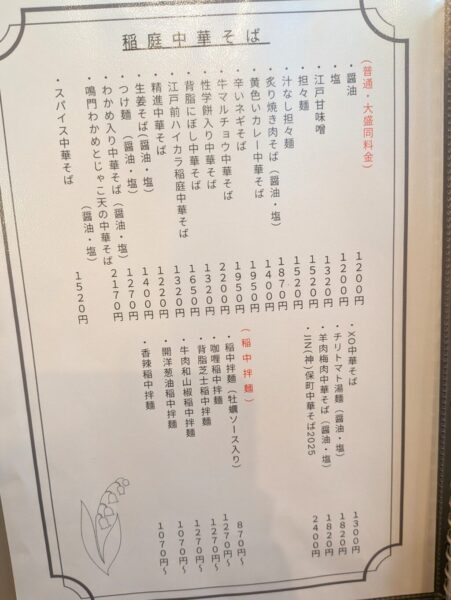 稲庭中華そば
(普通・大盛同料金)
・醤油 1200円
・塩 1200円
・江戸甘味噌 1320円
・担々麺 1520円
・汁なし担々麺 1520円
・炙り焼き肉そば（醤油・塩） 1870円
・黄色いカレー中華そば 1400円
・辛いネギそば 1950円
・牛マルチョウ中華そば 1950円
・性学餅入り中華そば 2200円
・背脂にぼし中華そば 1320円
・江戸前ハイカラ稲庭中華そば 1650円
・精進中華そば 1320円
・生姜そば（醤油・塩） 1220円
・つけ麺（醤油・塩） 1400円
・わかめ入り中華そば（醤油・塩） 1270円
・鳴門わかめとじゃこ天の中華そば（醤油・塩） 2170円
・スパイス中華そば 1520円
・XO中華そば 1300円
・チリトマト湯麺（醤油・塩） 1820円
・羊肉梅肉中華そば（醤油・塩） 1820円
・JIN(神)保町中華そば2025 2400円
(稲中拌麺)
・稲中拌麺（牡蠣ソース入り） 870円〜
・咖喱稲中拌麺 1270円〜
・背脂芝士稲中拌麺 1270円〜
・牛肉和山椒稲中拌麺 1270円〜
・開洋葱油稲中拌麺 1070円〜
・香辣稲中拌麺 1070円〜